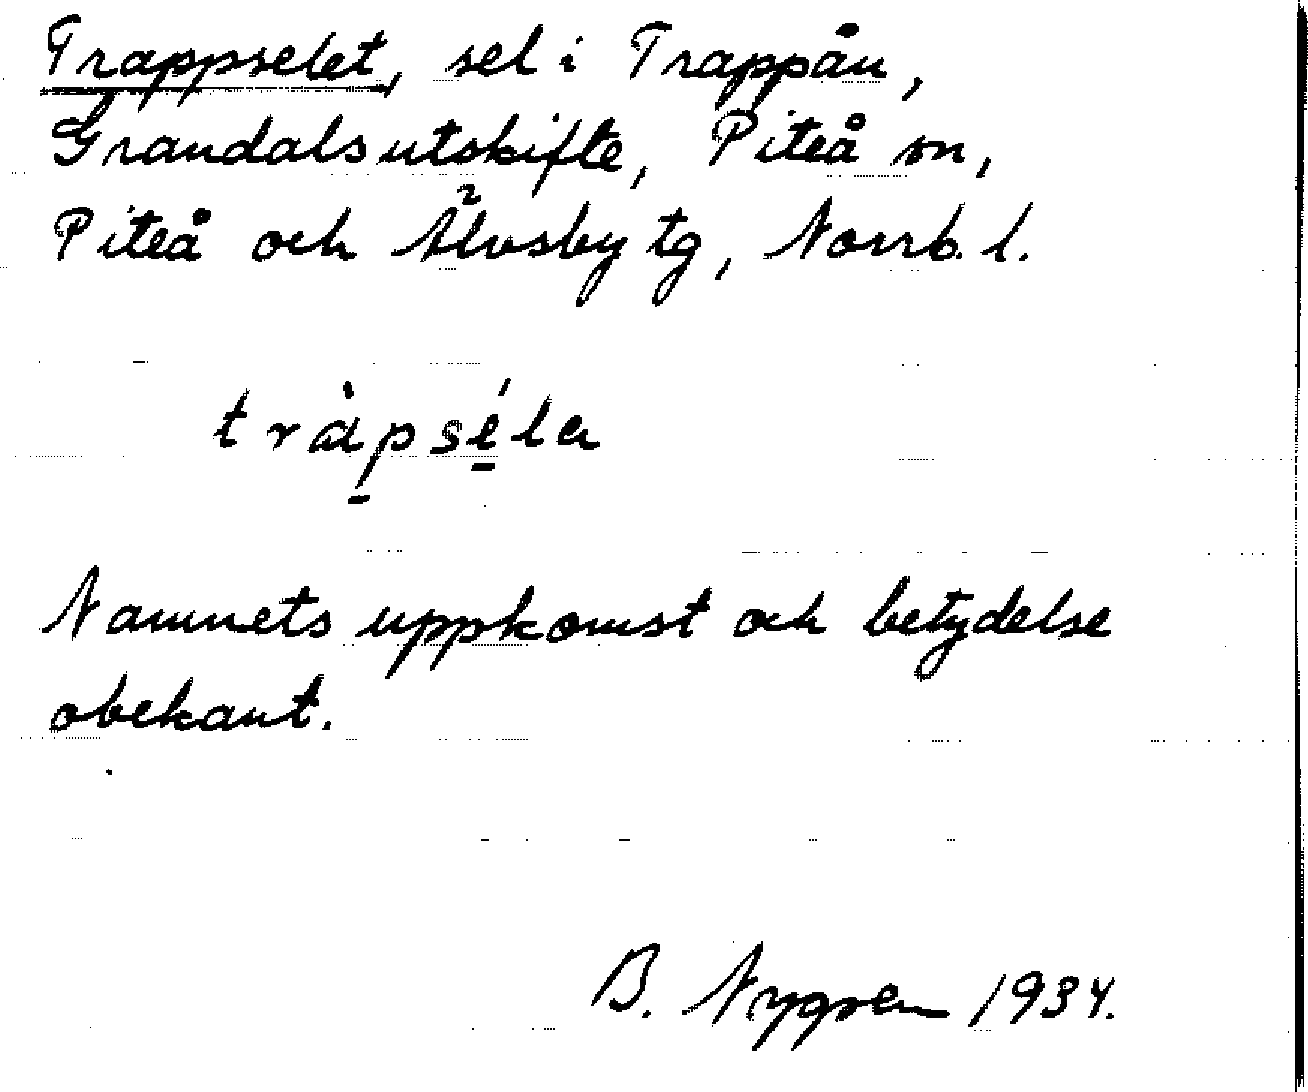 Trappselet, sel i Trappån,
Grandalsutskifte, Piteå sn,
Piteå och Älvsby tg, Norrb. l.
tràp̱sé̱la
Namnets uppkomst och betydelse
obekant.
B. Nygren 1934.